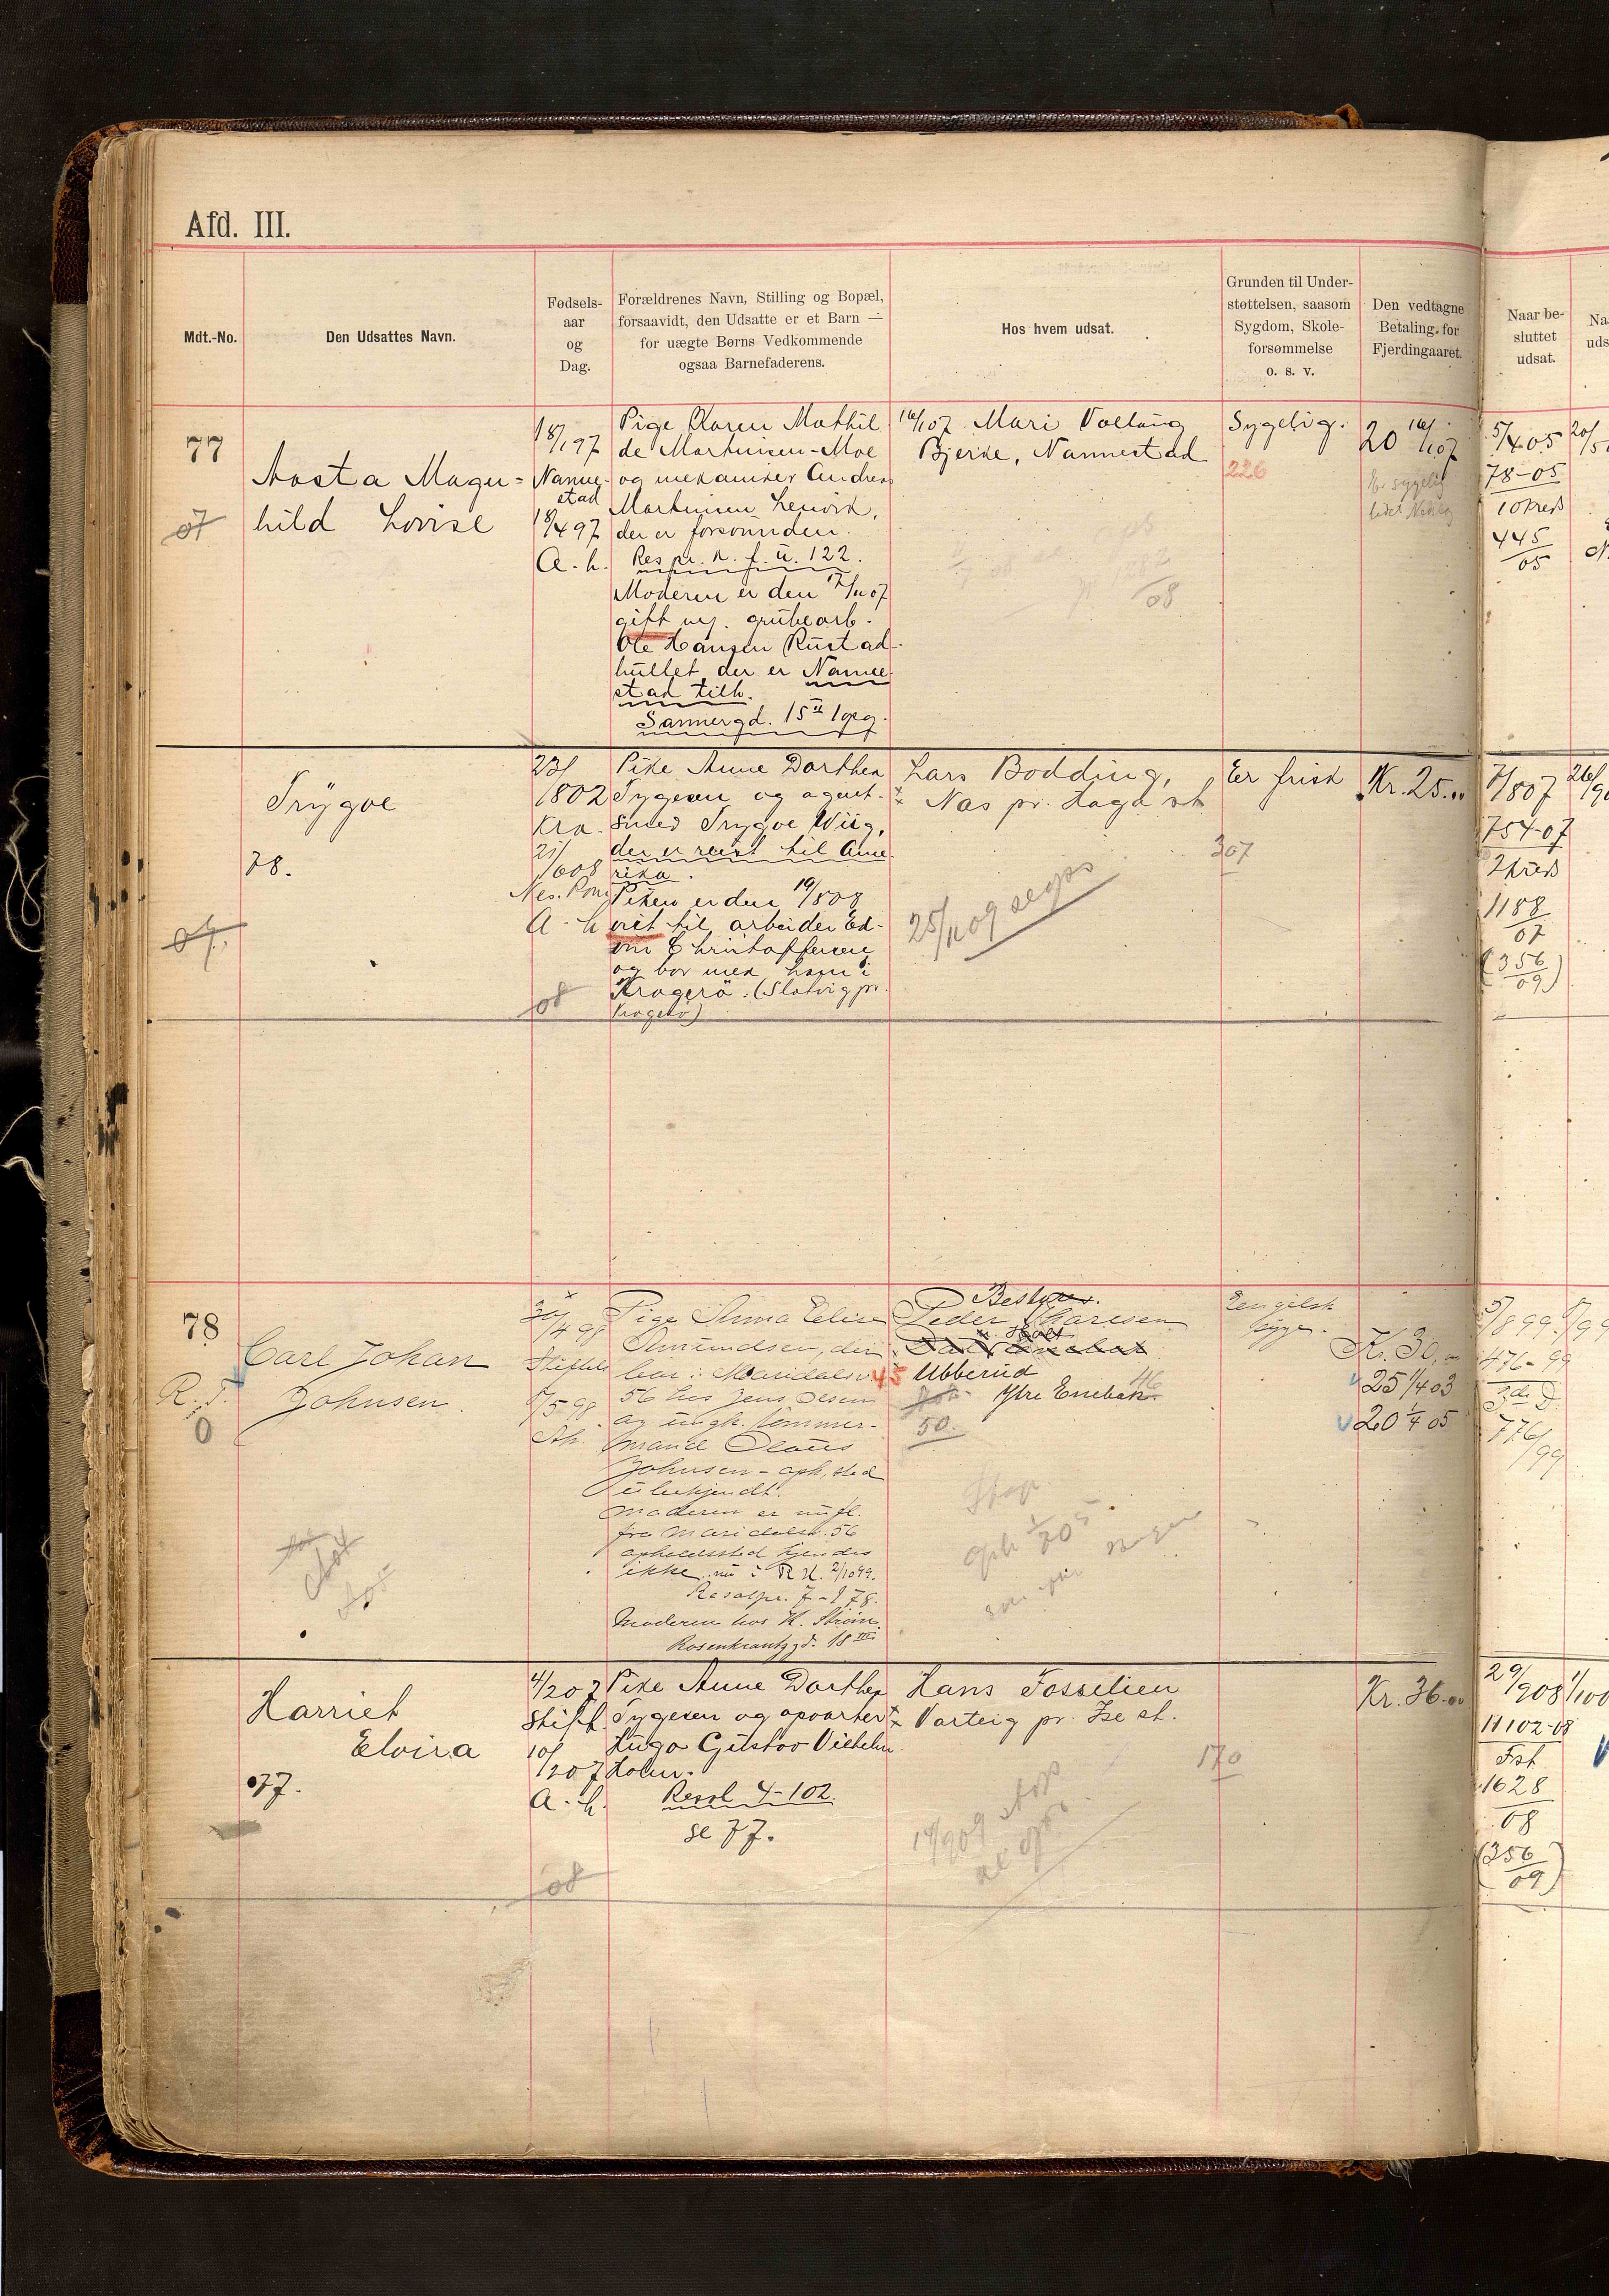 Afd. III.
Mdt.-No.
Den Udsattes Navn.
Fødsels-
aar
og
Dag.
Forældrenes Navn, Stilling og Bopæl,
forsaavidt, den Udsatte er et Barn —
for uægte Børns Vedkommende
ogsaa Barnefaderens.
Hos hvem udsat.
Grunden til Under-
støttelsen, saasom
Sygdom, Skole-
forsømmelse
o. s. v.
Den vedtagne
Betaling for
Fjerdingaaret.
Naar be-
sluttet
udsat.
77
07
Aasta Magn=
hild Lovise
18/1 97
Nanne-
stad
18/4 97
A. k.
Pige Karen Mathil
de Martinsen-Moe
og mekaniker Andreas
Martinsen
der er forsvunden.
Res. pr. k. f. u. 122.
Moderen er den 17/11 07
gift m. grubearb.
Ole Hansen Rustad-
hullet der er Nanne-
stad tilh.
Sannergd. 15 II opg.
16/1 07 Mari Vollaug
Bjerke, Nannestad
Sygelig.
226
20 16/1 07
Er sygelig
5/4 05
78-05
10 kreds
445/05
20/5
Trygve
78.
07.
23/1 802
Kra.
21/6 08
A-k
08
Pike Anne Dorthea
Tygesen og agent
Trygve Wiig,
der er reist til Ame
rika.
Piken er den 19/8 08
viet til arbeider Ed-
vin Christoffersen
og bor med ham i
Kragerø. (Slatvig pr.
Kragerø)
Lars Bodding,
Nas pr. Haga st
25/11 09
Er frisk
307
Kr. 25.00
7/8 07
754-07
2 kreds
1188/07
(356/09)
78
R. T.
0
Carl Johan
Johnsen.
30/4 98
Stiftels
8/5 98
Ak
Pige Anna Elise
Amundsen, der
bor i Maridalsv.
56 hos Jens Olsen
og ungk. tømmer-
mand Olaus
Johnsen - oph. sted
ubekjendt.
Moderen er nufl.
fra Maridalsv. 56
opholdssted kjendes
ikke, nu i R. H. 2/10 99.
Resolpr. 7-178.
Moderen hos H. Strøm
Rosenkrantzgd. 18 III
Bestyrer.
Peder Thoresen
45 Ubberud
Ytre Enebak.
46
50.
Stop
Engelsk
syge.
Kr. 30,00
25 1/4 03
20 1/4 05
5/8 99
476-99
3de D.
776/99
Harriet
Elvira
77.
4/2 07
Stift.
10/1 207
A. k.
08
Pike Anne Dorthea
Tygesen og opvarter
Hugo Gustav Vilhelm
Holm.
Resol 4-102.
se 77.
Hans Fosselien
Varteig pr. Ise st.
170
Kr. 36.00
29/9 08
11102-08
Fst
1628/08
(356/09)